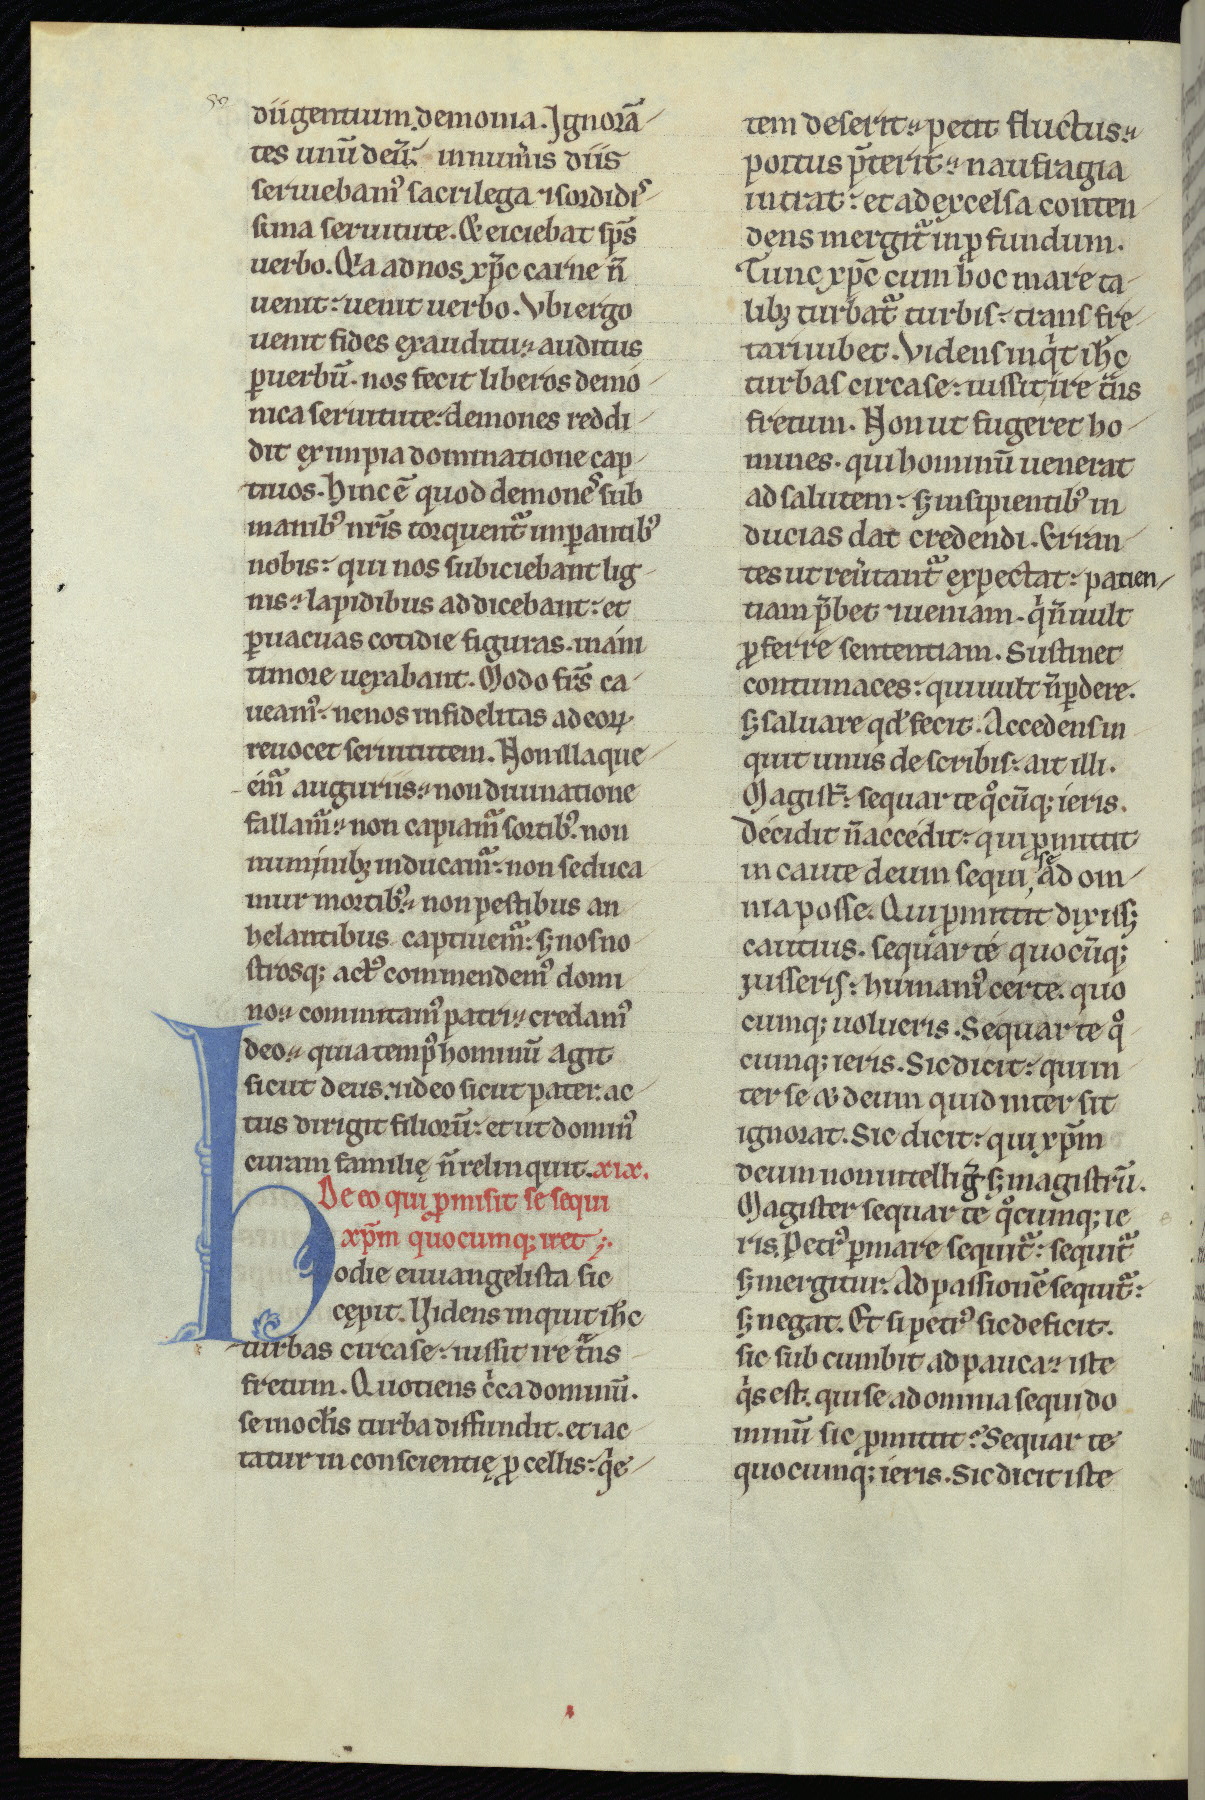 dii gentium demonia. Ignorā
tes unū deū. innumīs diis
seruiebam᷒ sacrilega ⁊ sordidis
sima seruitute. & eiciebat sp̄s
uerbo. Q'a ad nos xp̄c carne n̄
uenit: uenit uerbo. Vbi ergo
uenit fides ex auditu auditus
ꝑ uerbū. nos fecit liberos demo
nica seruitute: demones reddi
dit ex impia dominatione cap
tiuos. Hinc ē quod demones sub
manib᷒ nr̄is torquent᷑ imꝑantib᷒
nobis: qui nos subiciebant lig
nis lapidibus addicebant: et
ꝑ uacuas cotidie figuras. inani
timore uexabant. Modo fr̄s ca
ueam᷒. ne nos infidelitas ad eoꝝ
reuocet seruitutem. Non illaque
em᷑ auguriis non diuinatione
fallam᷑ non capiam᷑ sortib᷒. non
numinibꝫ inducam᷑: non seduca
mur mortib᷒ non pestibus an
helantibus captiuem᷑: sꝫ nos no
strosqꝫ act᷒ commendem᷒ domi
no committam᷒ patri credam᷒
deo quia temp᷒ hominū agit
sicut deus. ⁊ ideo sicut pater. ac
tus dirigit filiorū: et ut domin᷒
curam familię n̄ relinquit. xix.
De eo qui ꝓmisit se sequi
xp̄m quocumqꝫ iret.
Hodie euuangelista sic
cępit. Videns inquit ih̄c
turbas circa se: iussit ire t᷑ns
fretum. Quotiens c'ca dominū.
se moct̄is turba diffundit. et iac
tatur in conscientię ꝓcellis: q'e
tem deserit petit fluctus
portus p̄terit naufragia
intrat: et ad excelsa conten
dens mergit᷑ in ꝓfundum.
Tunc xp̄c cum hoc mare ta
libꝫ turbat᷑ turbis: transfre
tari iubet. Videns inq't ih̄c
turbas circa se: iussit ire t᷑ns
fretum. Non ut fugeret ho
mines. qui hominū uenerat
ad salutem: sꝫ insipientib᷒ in
ducias dat credendi. Erran
tes ut reūtant᷑ expectat: patien
tiam p̄bet ⁊ ueniam. q' n̄ uult
ꝓferre sententiam. Sustinet
contumaces: qui uult n̄ ꝑdere.
sꝫ saluare qd̄ fecit. Accedens in
quit unus de scribis: ait illi.
Magist̄: sequar te q°cūqꝫ ieris.
Decidit n̄ accedit: qui ꝓmittit
incaute deum sequi, se ad om
nia posse. Qui ꝓmittit dixissꝫ
cautius. sequar te quocūqꝫ
iusseris: humani᷒ certe. quo
cumqꝫ uolueris. Sequar te q°
cumqꝫ ieris. Sic dicit: qui in
ter se & deum quid inter sit
ignorat. Sic dicit: qui xp̄m
deum non intelligit sꝫ magistrū.
Magister sequar te q°cumqꝫ ie
ris. Petr᷒ ꝑ mare sequit᷑: sequit᷑
sꝫ mergitur. Ad passionē sequit᷑:
sꝫ negat. Et si petr᷒ sic deficit.
sic subcumbit ad pauca iste
q's est. qui se ad omnia sequi do
minū sic ꝓmittit? Sequar te
quocumqꝫ ieris. Sic dicit iste